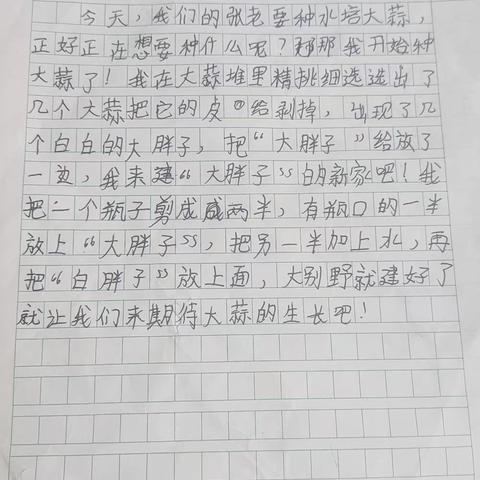 今天，我们的张老要种水培大蒜，
正好正在想要种什么呢？那我开始种
大蒜了！我在大蒜堆里精挑细选选出了
几个大蒜把它的皮给剥掉，出现了几
个白白的大胖子，把“大胖子”给放了
一边，我来建“大胖子”的新家吧！我
把一个瓶子剪成成两半，有瓶口的一半
放上“大胖子”，把另一半加上水，再
把“白胖子”放上面，大别野就建好了
就让我们来期待大蒜的生长吧！